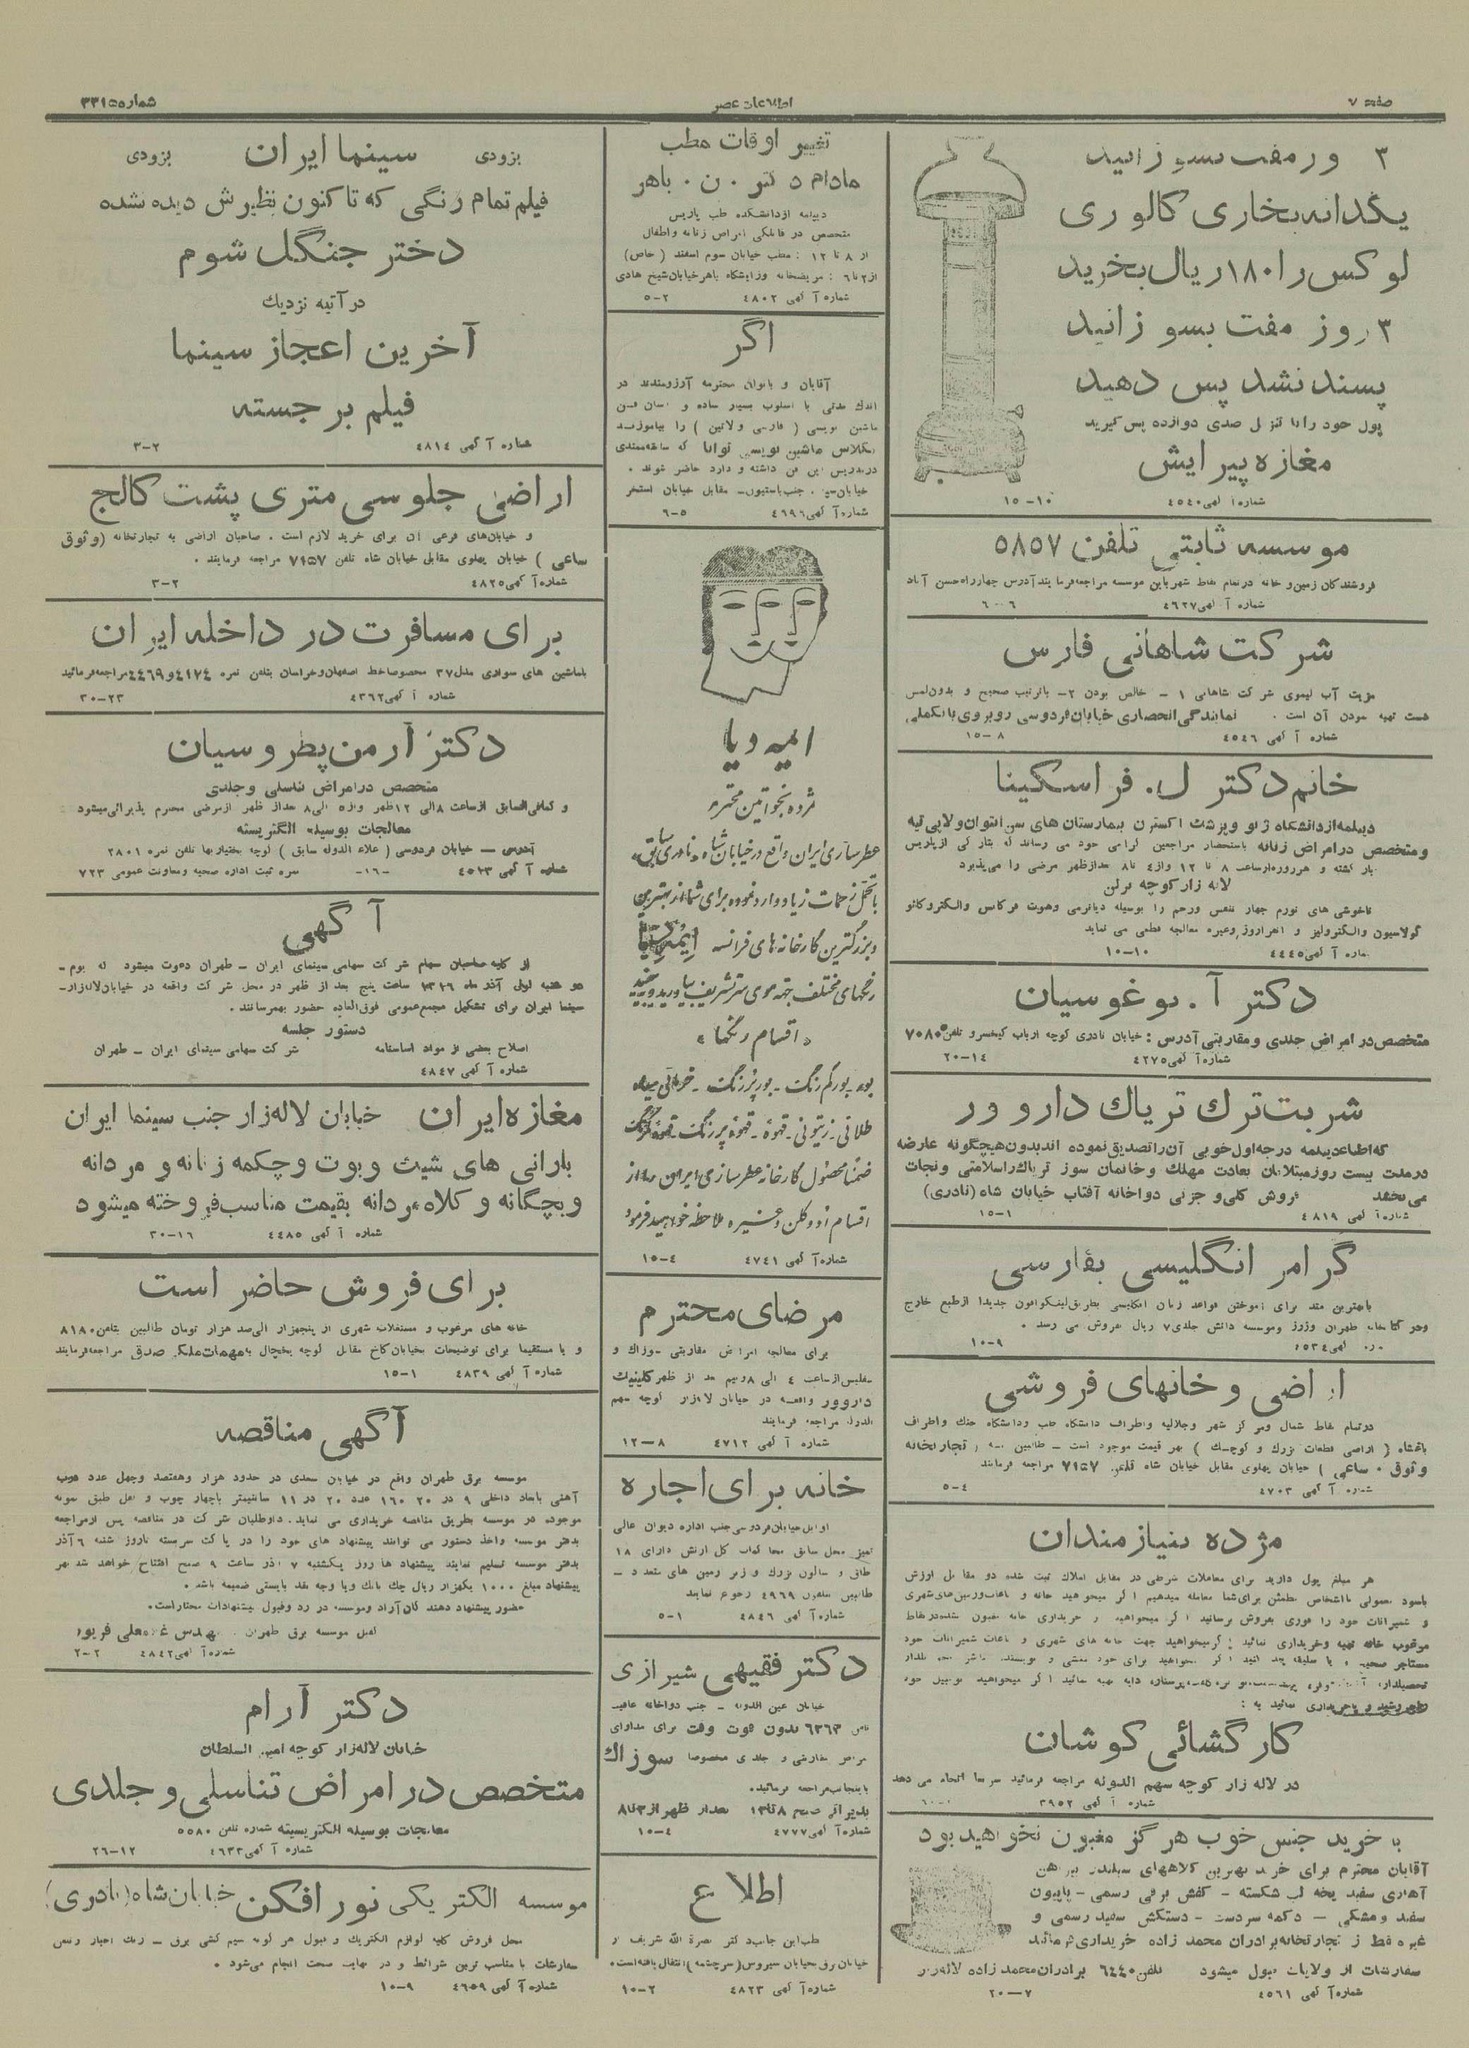 صفحه ۷
اطلاعات عصر
شماره ۳۳۱۵
۳ روز مفت بسوزانید
یکدانه بخاری کالوری
لوکس را ۱۸۰ ریال بخرید
۳ روز مفت بسوزانید
پسند نشد پس دهید
پول خود را با تنزل صدی دوازده پس گیرید
مغازه پیرایش
شماره آگهی ۴۵۴۰ ۱۰-۱۵
موسسه ثابتی تلفن ۵۸۵۷
فروشندگان زمین و خانه در تمام نقاط شهر باین موسسه مراجعه فرمایند آدرس چهارراه حسن آباد
شماره آگهی ۴۶۲۷ ۶-۶
شرکت شاهانی فارس
مزیت آب لیموی شرکت شاهانی ۱ - خالص بودن ۲- باترتیب صحیح و بدون لمس
دست تهیه نمودن آن است . نمایندگی انحصاری خیابان فردوسی روبروی بانک ملی
شماره آگهی ۴۵۴۶ ۸-۱۵
خانم دکتر ل. فراسکینا
دیپلمه از دانشگاه ژنو و پزشک اکسترن بیمارستان های سن انتوان ولاپی تیه
ومتخصص در امراض زنانه باستحضار مراجعین گرامی خود می رساند که بتازگی از پاریس
بازگشته و هرروزه از ساعت ۸ تا ۱۲ و از ۴ تا ۸ بعد از ظهر مرضی را می پذیرد
لاله زار کوچه برلن
ناخوشی های تورم جهاز تنفس ورحم را بوسیله دیاترمی وهوت فرکانس والکتروکائو
گولاسیون والکترولیز و انفراروژ وغیره معالجه قطعی می نماید
شماره آگهی ۴۴۴۵ ۱۰-۱۰
دکتر آ. بوغوسیان
متخصص در امراض جلدی و مقاربتی آدرس : خیابان نادری کوچه ارباب کیخسرو تلفن ۷۰۸۰
شماره آگهی ۴۲۷۵ ۱۴-۲۰
شربت ترک تریاک داروور
که اطباء دیپلمه درجه اول خوبی آن را تصدیق نموده اند بدون هیچگونه عارضه
در مدت بیست روز مبتلایان بعادت مهلک و خانمان سوز تریاک را سلامتی و نجات
می بخشد فروش کلی و جزئی دواخانه آفتاب خیابان شاه (نادری)
شماره آگهی ۴۸۱۹ ۱-۱۵
گرامر انگلیسی بفارسی
با بهترین متد برای آموختن قواعد زبان انگلیسی بطریق لینگوافون جدیدا از طبع خارج
ودر کتابخانه طهران و روز وموسسه دانش جلدی ۷ ریال بفروش می رسد .
آگهی ۴۵۳۴ ۹-۱۰
اراضی و خانهای فروشی
در تمام نقاط شمال ومرکز شهر وجلالیه واطراف دانشگاه طب ودانشگاه جنگ واطراف
باغشاه ( اراضی قطعات بزرگ و کوچک ) بهر قیمت موجود است - طالبین به تجارتخانه
وثوق . ساعی ) خیابان پهلوی مقابل خیابان شاه تلفن ۷۹۵۷ مراجعه فرمایند
شماره آگهی ۴۷۰۳ ۴-۵
مژده بنیازمندان
هر مبلغ پول دارید برای معاملات شرطی در مقابل املاک ثبت شده دو مقابل ارزش
باسود معمولی با اشخاص مطمئن برای شما معامله میدهیم اگر میخواهید خانه و باغات وزمین های شهری
و شمیرانات خود را فوری بفروش برسانید اگر میخواهید
مرغوب خانه تهیه وخریداری نمائید اگر میخواهید جهت خانه های شهری و باغات شمیرانات خود
کارگشائی کوشان
در لاله زار کوچه سهم الدوله مراجعه فرمائید سریعا انجام می دهد
شماره آگهی ۳۹۵۲
با خرید جنس خوب هرگز مغبون نخواهید بود
آقایان محترم برای خرید بهترین کلاههای سیلندر پیراهن
آهاری سفید یخه لب شکسته - کفش برقی رسمی - پاپیون
سفید و مشکی - دکمه سردست - دستکش سفید رسمی و
غیره فقط از تجارتخانه برادران محمد زاده خریداری فرمائید
سفارشات از ولایات قبول میشود تلفن ۶۴۴۰ برادران محمد زاده لاله زار
شماره آگهی ۴۵۶۱ ۷-۲۰
تغییر اوقات مطب
مادام دکتر . ن . باهر
دیپلمه از دانشکده طب پاریس
متخصص در قابلگی امراض زنانه واطفال
از ۸ تا ۱۲ : مطب خیابان سوم اسفند (خاص)
از ۲ تا ۶ : مریضخانه وزایشگاه باهر خیابان شیخ هادی
شماره آگهی ۴۸۰۲ ۲-۵
اگر
آقایان و بانوان محترمه آرزومندند در
اندک مدتی با اسلوب بسیار ساده و آسان فن
ماشین نویسی ( فارسی و لاتین ) را بیاموزند
بکلاس ماشین نویسی توانا که سابقه ممتدی
در تدریس این فن داشته و دارد حاضر شوند .
خیابان سپه. جنب باستیون- مقابل خیابان استخر
شماره آگهی ۴۶۹۶ ۵-۶
ایمه دیا
مژده بخواتین محترمه
عطرسازی ایران واقع در خیابان شاه «نادری سابق»
با تحمل زحمات زیاد وارد نموده برای شما از بهترین
و بزرگترین کارخانه های فرانسه ایمه دیا
رنگهای مختلف جهة موی سر تشریف بیاورید و ببینید
« اقسام رنگها »
بور- بور کم رنگ - بور پر رنگ - خرمائی سیاه
طلائی - زیتونی - قهوه - قهوه پر رنگ - قهوه کمرنگ
ضمنا محصول کارخانه عطرسازی ایران را از
اقسام ادوکلن و غیره ملاحظه خواهید فرمود
شماره آگهی ۴۷۴۱ ۴-۱۵
مرضای محترم
برای معالجه امراض مقاربتی - سوزاک و
سفلیس از ساعت ۴ الی ۸ و نیم بعد از ظهر کلینیک
داروور واقعه در خیابان لاله زار کوچه سهم
الدوله مراجعه فرمایند
شماره آگهی ۴۷۱۲ ۸-۱۲
خانه برای اجاره
اوایل خیابان فردوسی جنب اداره دیوان عالی
تمیز محل سابق محاکمات کل ارتش دارای ۱۸
طاق و سالون بزرگ و زیر زمین های متعدد -
طالبین بتلفون ۴۹۶۹ رجوع نمایند
شماره آگهی ۴۸۴۶ ۱-۵
دکتر فقیهی شیرازی
خیابان عین الدوله - جنب دواخانه عافیت
تلفن ۶۳۶۳ بدون فوت وقت برای مداوای
مرض مقاربتی و جلدی مخصوصا سوزاک
باینجانب مراجعه فرمائید.
پذیرائی صبح ۸ تا ۱۲ بعد از ظهر از ۳ تا ۸
شماره آگهی ۴۷۷۷ ۴-۱۰
اطلاع
مطب این جانب دکتر نصرة الله شریف از
خیابان برق بخیابان سیروس (سرچشمه) انتقال یافته است .
شماره آگهی ۴۸۲۳ ۲-۱۰
بزودی سینما ایران بزودی
فیلم تمام رنگی که تا کنون نظیرش دیده نشده
دختر جنگل شوم
در آتیه نزدیک
آخرین اعجاز سینما
فیلم برجسته
شماره آگهی ۴۸۱۴ ۲-۳
اراضی جلو سی متری پشت کالج
و خیابان های فرعی آن برای خرید لازم است . صاحبان اراضی به تجارتخانه (وثوق
ساعی ) خیابان پهلوی مقابل خیابان شاه تلفن ۷۹۵۷ مراجعه فرمایند .
شماره آگهی ۴۸۲۵ ۲-۳
برای مسافرت در داخله ایران
با ماشین های سواری مدل ۳۷ مخصوصا خط اصفهان وخراسان بتلفن نمره ۴۱۷۴ و ۴۴۶۹ مراجعه فرمائید
شماره آگهی ۴۳۶۲ ۲۳-۳۰
دکتر آرمن پطروسیان
متخصص در امراض تناسلی وجلدی
و کمافی السابق از ساعت ۸ الی ۱۲ ظهر و از ۵ الی ۸ بعد از ظهر از مرضی محترم پذیرائی میشود
معالجات بوسیله الکتریسته
آدرس - خیابان فردوسی ( علاء الدوله سابق ) کوچه بختیاریها تلفن نمره ۲۸۰۱
شماره آگهی ۴۵۱۳ -۱۶- نمره ثبت اداره صحیه ومعاونت عمومی ۷۲۳
آگهی
از کلیه صاحبان سهام شرکت سهامی سینمای ایران - طهران دعوت میشود که یوم -
سه شنبه اول آذر ماه ۱۳۱۶ ساعت پنج بعد از ظهر در محل شرکت واقعه در خیابان لاله زار-
سینما ایران برای تشکیل مجمع عمومی فوق العاده حضور بهمرسانند .
دستور جلسه
اصلاح بعضی از مواد اساسنامه شرکت سهامی سینمای ایران - طهران
شماره آگهی ۴۸۴۷
مغازه ایران خیابان لاله زار جنب سینما ایران
بارانی های شیک وبوت وچکمه زنانه و مردانه
وبچگانه و کلاه مردانه بقیمت مناسب فروخته میشود
شماره آگهی ۴۴۸۵ ۱۶-۳۰
برای فروش حاضر است
خانه های مرغوب و مستغلات شهری از پنجهزار الی صد هزار تومان طالبین بتلفن ۸۱۸۰
و یا مستقیما برای توضیحات بخیابان کاخ مقابل کوچه یخچال بامهمات ملکی صدق مراجعه فرمایند
شماره آگهی ۴۸۳۹ ۱-۱۵
آگهی مناقصه
موسسه برق طهران واقع در خیابان سعدی در حدود هزار وهفتصد وچهل عدد درب
آهنی بابعاد داخلی ۹ در ۲۰ ۱۶۰ عدد ۲۰ در ۱۱ سانتیمتر باچهار چوب و قفل طبق نمونه
موجوده در موسسه بطریق مناقصه خریداری می نماید. داوطلبان شرکت در مناقصه پس از مراجعه
بدفتر موسسه واخذ دستور می توانند پیشنهاد های خود را در پاکت سربسته تاروز شنبه ۶ آذر
بدفتر موسسه تسلیم نمایند پیشنهاد ها روز یکشنبه ۷ آذر ساعت ۹ صبح افتتاح خواهد شد بهر
پیشنهاد مبلغ ۱۰۰۰ یکهزار ریال چک بانک ویا وجه نقد بایستی ضمیمه باشد .
حضور پیشنهاد دهندگان آزاد وموسسه در رد وقبول پیشنهادات مختار است.
کفیل موسسه برق طهران . مهندس غلامعلی فریور
شماره آگهی ۴۸۴۲ ۲-۲
دکتر آرام
خیابان لاله زار کوچه امین السلطان
متخصص در امراض تناسلی و جلدی
معالجات بوسیله الکتریسیته شماره تلفن ۵۵۸۰
شماره آگهی ۴۶۳۳ ۱۲-۲۶
موسسه الکتریکی نورافکن خیابان شاه (نادری)
محل فروش کلیه لوازم الکتریک و قبول هر گونه سیم کشی برق - زنگ اخبار
سفارشات با مناسب ترین شرائط و در نهایت صحت انجام می شود .
شماره آگهی ۴۶۵۹ ۹-۱۰